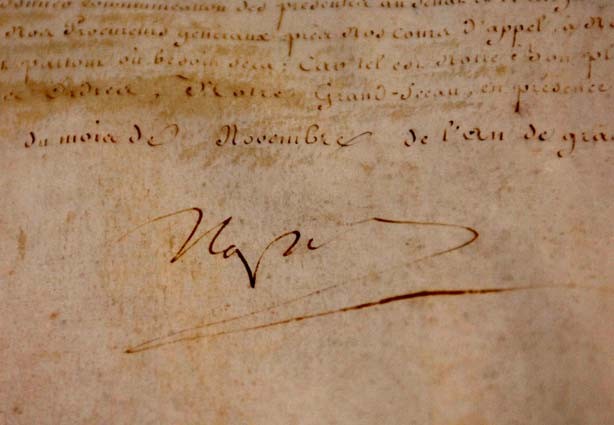 communication des présentes au Sénat
Nos Procureurs généraux près Nos cours d'appel, à N
partout où besoin sera: Car tel est Notre Bon pl
Notre Grand-Sceau, en présence
du mois de Novembre de l'An de grâ
Nap